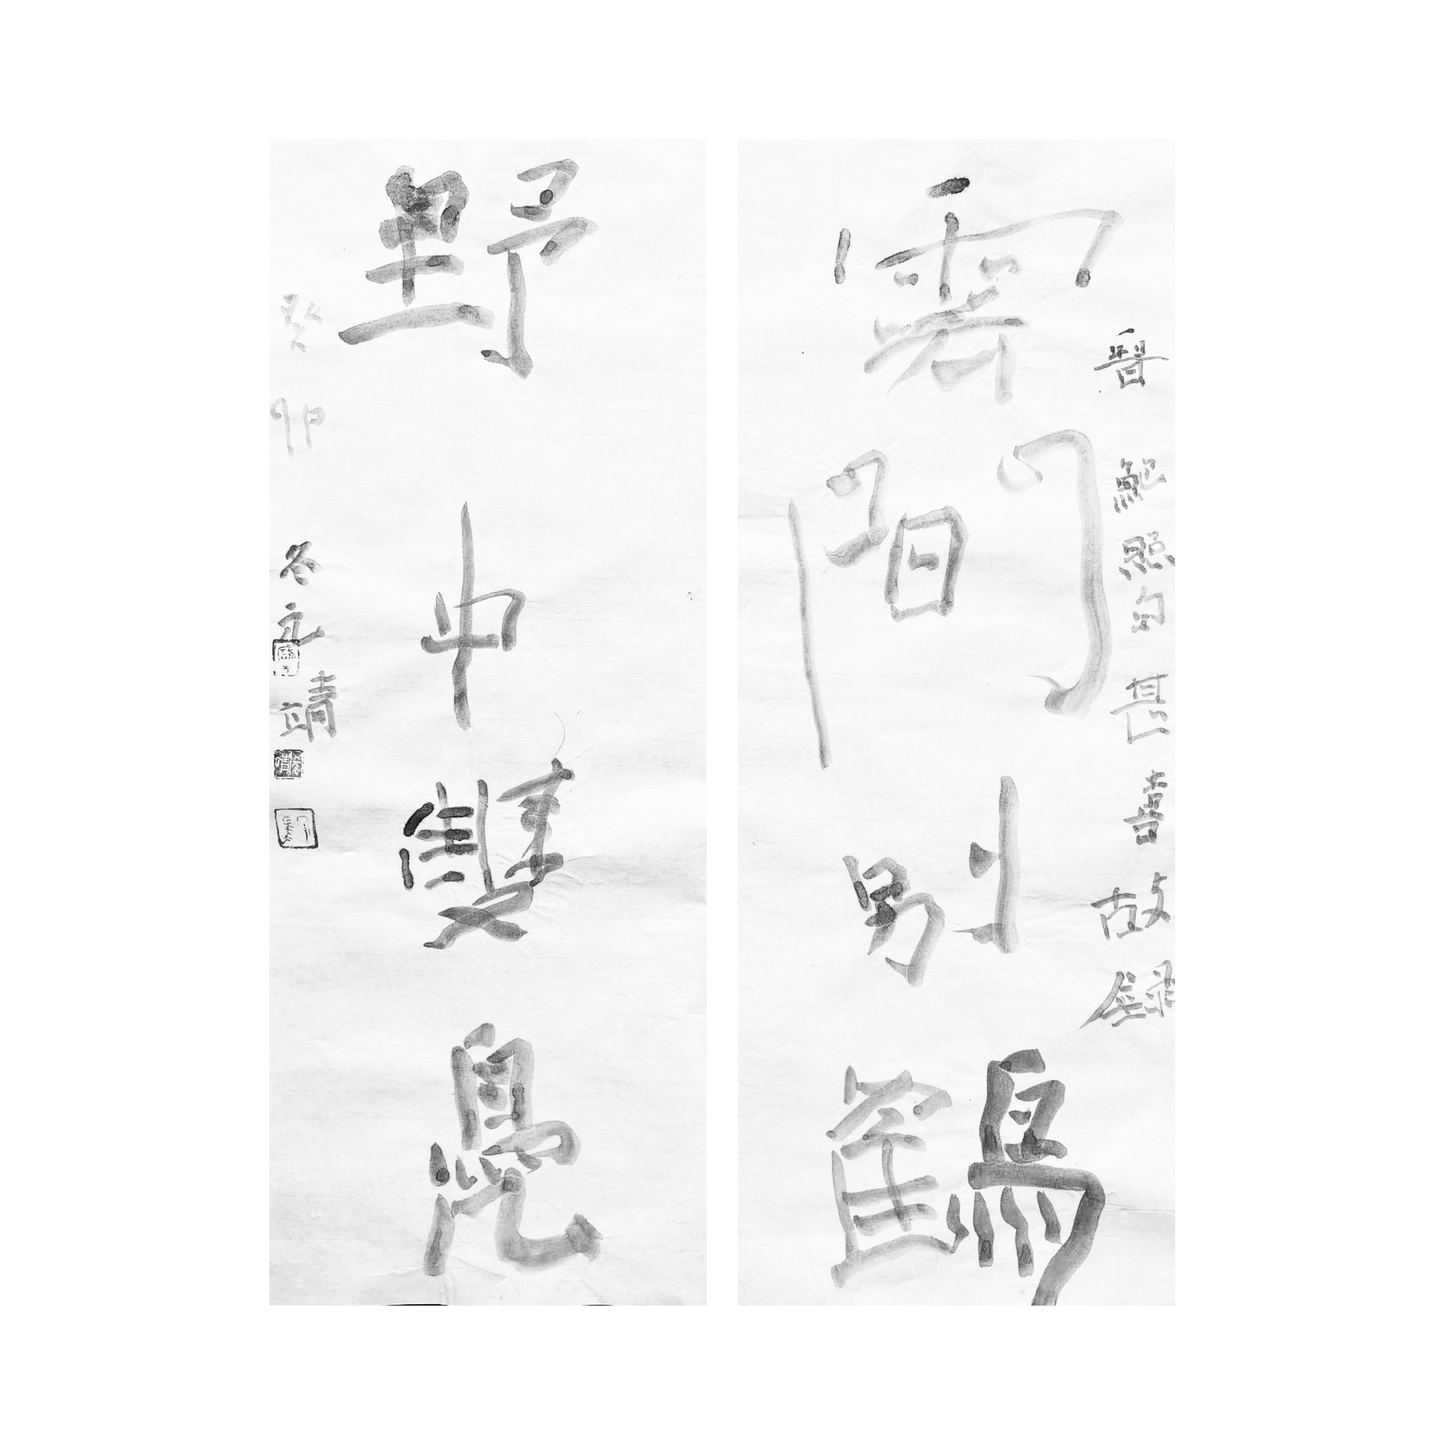 晉鮑照句甚喜故錄
雲間別鶴
野中雙鳧
癸卯冬靖